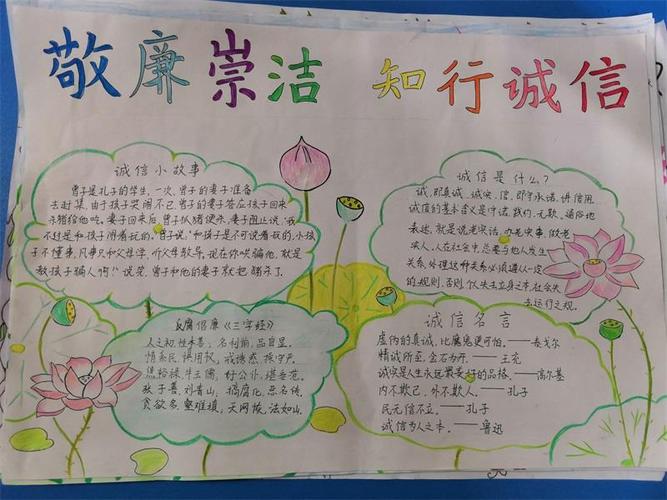 敬廉崇洁 知行诚信
诚信小故事
曾子是孔子的学生,一次,曾子的妻子准备
去赶集,由于孩子哭闹不已,曾子的妻子答应孩子回来
杀猪给他吃。妻子回来后,曾子队猪便杀,妻子阻止说:"我
不过是和孩子闹着玩的。"曾子说:"和孩子是不可说着玩的,小孩
子不懂事,凡事只和父母学,听父母教导,现在你哄骗他,就是
教孩子骗人啊!"说完,曾子和他的妻子就把猪杀了。
诚信是什么?
诚,即真诚、诚实,信,即守承诺、讲信用
诚信的基本含义是守诺、践约、无欺。通俗地
表达,就是说老实话、办老实事、做老
实人。人在社会中,总要与他人发生
关系,处理这种关系必须遵从一定
的规则,否则,个人失去立身之本,社会失
去运行之规。
反腐倡廉《三字经》
人之初,性本善,名利前,品自显。
情系民,慎用权,戒揍然,挨字严。
焦裕禄,牛玉儒,好公仆,堪垂范。
张子善,刘青山,搞腐化,恶名传。
贪欲多,壑难填,天网恢,法如山。
诚信名言
虚伪的真诚,比魔鬼更可怕。——泰戈尔
精诚所至,金石为开。——王充
诚实是人生永远最美好的品格。——高尔基
内不欺己,外不欺人。——孔子
民无信不立。——孔子
诚信为人之本。——鲁迅